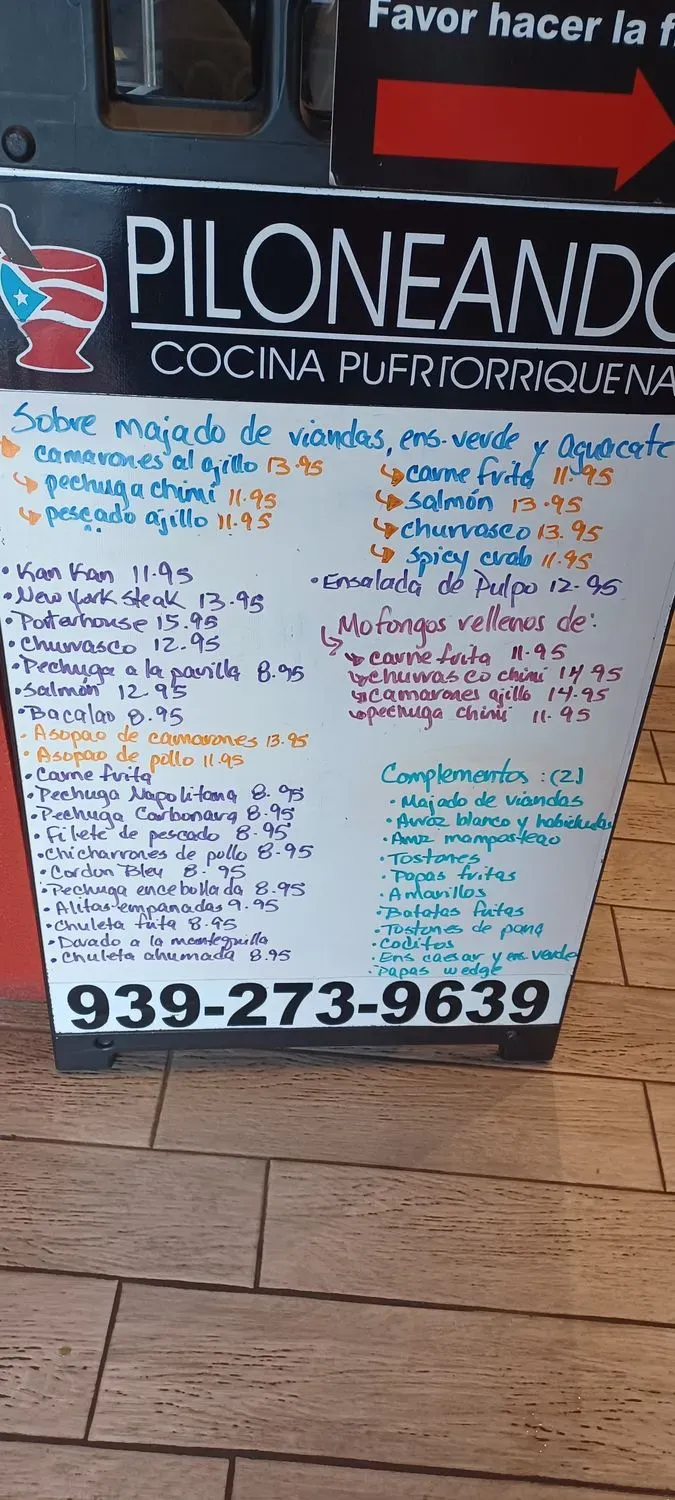 Favor hacer la f
PILONEANDO
COCINA PUERTORRIQUENA
Sobre majado de viandas, ens. verde y aguacate
camarones al ajillo 13.95
pechuga chimi 11.95
pescado ajillo 11.95
carne frita 11.95
salmón 13.95
churrasco 13.95
spicy crab 11.95
• Kan Kan 11.95
• New York Steak 13.95
• Porterhouse 15.95
• Churrasco 12.95
• Pechuga a la parrilla 8.95
• Salmón 12.95
• Bacalao 8.95
• Asopao de camarones 13.95
• Asopao de pollo 11.95
• Carne frita
• Pechuga Napolitana 8.95
• Pechuga Carbonara 8.95
• Filete de pescado 8.95
• Chicharrones de pollo 8.95
• Cordon Bley 8.95
• Pechuga encebollada 8.95
• Alitas empanadas 9.95
• Chuleta frita 8.95
• Dorado a la mantequilla
• Chuleta ahumada 8.95
• Ensalada de Pulpo 12.95
Mofongos rellenos de:
carne frita 11.95
churrasco chimi 14.95
camarones ajillo 14.95
pechuga chimi 11.95
Complementos: (2)
• Majado de viandas
• Arroz blanco y habichuelas
• Arroz mamposteao
• Tostones
• Papas fritas
• Amarillos
• Batatas fritas
• Tostones de pana
• Coditos
• Ens caesar y ens verde
• Papas wedge
939-273-9639